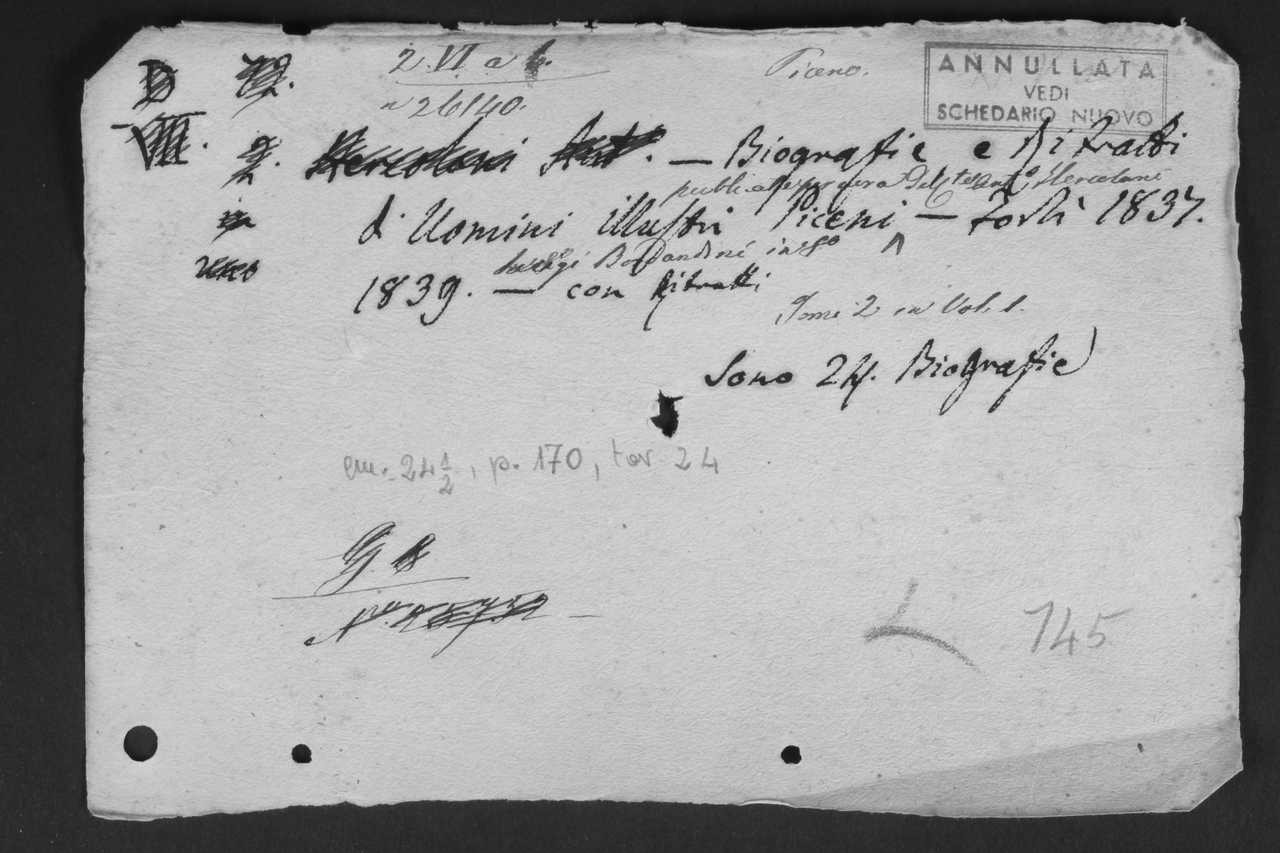 2. VI. a 6.
Piceno.
ANNULLATA
VEDI
SCHEDARIO NUOVO
D 72.
n 26140.
VIII. 2. Hercolani Ant. — Biografie e Ritratti
pubblicate per cura del Antº. Hercolani
in d'Uomini illustri Piceni — Forlì 1837.
Luigi Bordandini in 8º
1839. — con Ritratti
Tomi 2 in Vol. 1.
Sono 24. Biografie
cm. 24 1/2, p. 170, tav 24
745